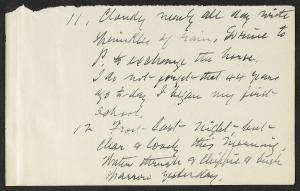 11, Cloudy nearly all day with
sprinkles of rain, Drive to
P. to exchange the horse.
I do not forget that 44 years
ago to-day I began my first
school.
12 Frost last night, but
clear & lovely this morning,
Water thrush & Chippie & bush
sparrow yesterday.